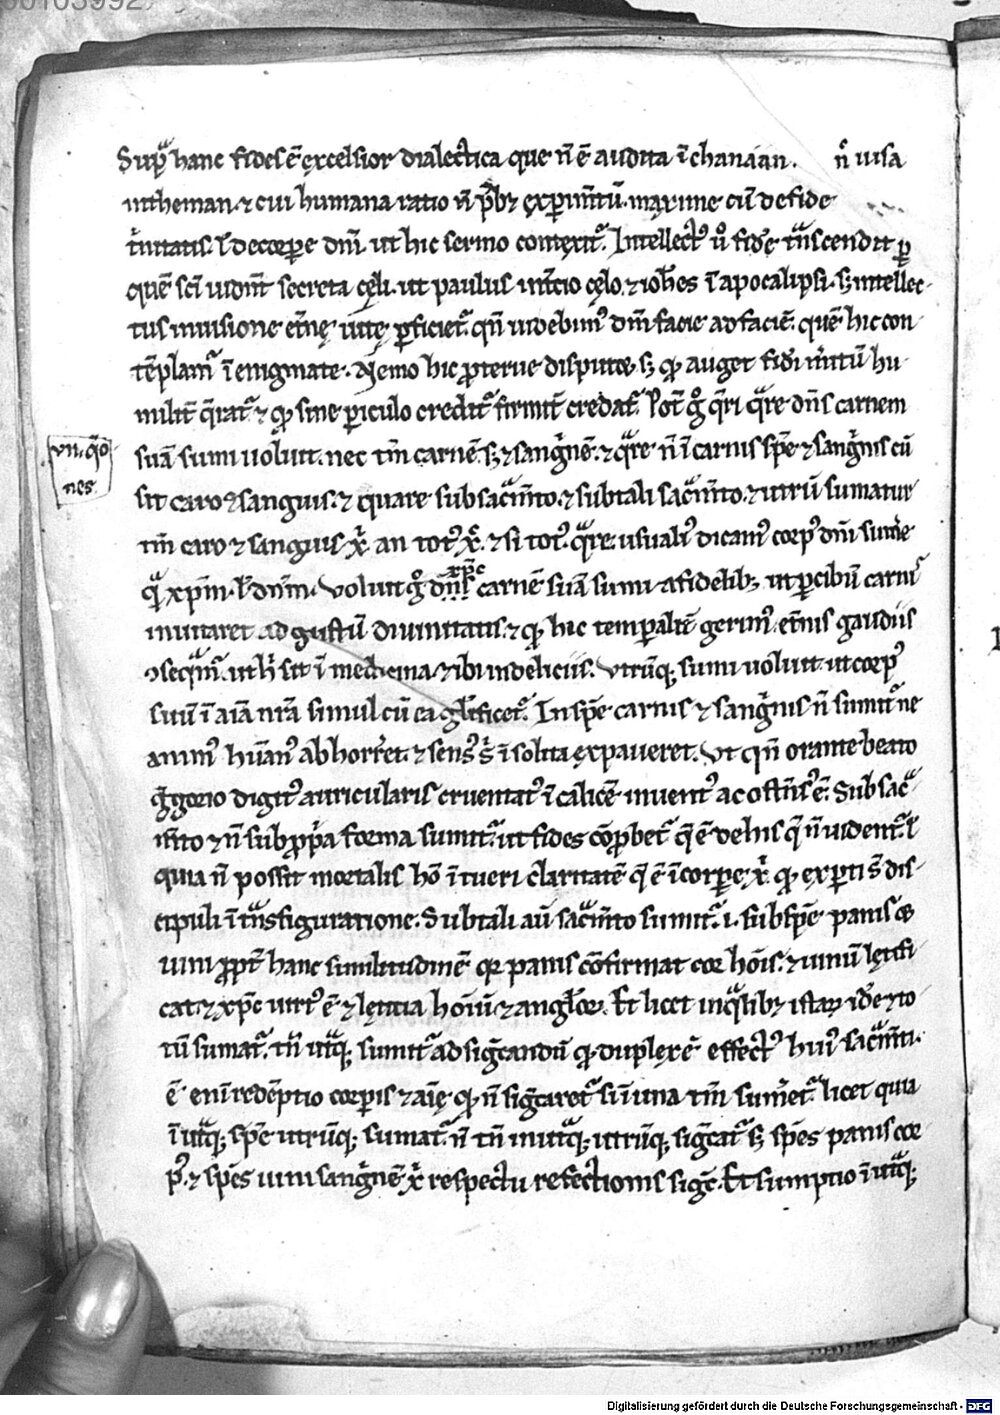 Sup̄ hanc fides ē excelsior dialectica que ñ ē audita ī chanáan. ñ uisa
intheman. ⁊ cui humana ratio ñ p̄bꝫ exꝑim̄tū. maxime cū de fide
t̄nitatis. ł de corꝑe dnī. ut hic sermo contexit᷑. Intellect᷒ ū fidē t̄nscendit ꝑ
quē sc̄i uident secreta cęli. ut paulus int̄cio cęlo. ⁊ ioh̄es ī apocalipsi. sꝫ intellec-
tus in uisione et̄nę uitę ꝑficiet᷑. qn̄ uidebim᷒ dn̄m facie ad faciē. quē hic con-
tēplam᷑ ī enigmate. Nemo hic ꝓterue disputet. sꝫ ꝙ auget fidei m̄itū hu-
milit̄ q̄rat᷑. ⁊ ꝙ sine ꝑiculo credit᷑ firmit̄ credat᷑. Pot̄ g̊ q̄ri q̄re dn̄s carnem
suā sumi uoluit. nec tm̄ carnē. sꝫ ⁊ sangᷓnē. ⁊ q̄re ñ ī carnis spē. ⁊ sangᷓnis cū
sit caro ⁊ sanguis. ⁊ quare sub sacͣm̄to. ⁊ sub tali sacͣm̄to. ⁊ utrū sumatur
tm̄ caro ⁊ sanguis x̄ an tot᷒ x̄. ⁊ si tot᷒. q̄re usuali᷒ dicam᷒ corp᷒ dn̄i sumere
q̄ xp̄m. ł dn̄m. Voluit g̊ dn̄s xp̄c carnē suā sumi a fidelibꝫ. ut ꝑ cibū carnis
inuitaret ad gustū diuinitatis. ⁊ ꝙ hic temꝑalit̄ gerim᷒. et̄nis gaudiis
ꝯseqm̄. ut h̄ sit ī medicina. ⁊ ibi in deliciis. Vtrūqꝫ sumi uoluit. ut corp᷒
suū ī aīa nr̄a simul cū ca glīficet᷑. In spē carnis ⁊ sangᷓnis ñ sumit᷑. ne
anim᷒ hūan᷒ abhorr̄et. ⁊ sens᷒ īsolita expaueret. Vt qn̄ orante beato
gͥgorio digit᷒ auricularis cruentat᷒ ī calicē inuent᷒ ac ostēns᷒ ē. Sub sacͣ-
m̄to ⁊ ñ sub ꝓp̄a forma sumit᷑. ut fides cōꝓbet᷑ q̄ ē de his q̄ ñ uident᷑. ł
quia ñ possit mortalis hō ītueri claritatē q̄ ē ī corꝑe x̄. ꝙ exꝑti st̄ dis-
cipuli ī tn̄sfiguratione. Sub tali aū sacͣm̄to sumit᷑. i. sub spē panis ⁊
uini ꝓpt̄ hanc similitudinē. quia panis cōfirmat cor hoīs. ⁊ uinū lętifi-
cat. ⁊ xp̄c uirt᷒ ē ⁊ lętitia hoīū ⁊ angłoꝝ. Et licet in q̄libꝫ istaꝝ idē ⁊ to-
tū sumat᷑. tn̄ utͣqꝫ sumit᷑ ad signͣcandū ꝙ duplex ē effect᷒ hui᷒ sacͣm̄ti.
ē enī redēptio corꝑis ⁊ aīę. ꝙ ñ signͣcaret᷑ si ī una tm̄ sum̄et᷑. licet quia
ī utͣqꝫ spē utrūqꝫ sumat᷑. ñ tn̄ in utͣqꝫ utrūqꝫ signͣcat᷑. sꝫ spēs panis cor-
p᷒. ⁊ spēs uini sangᷓnē x̄ respectu refectionis signͣ. Et sumptio ī utͣqꝫ
vn. q̄o
nes
Digitalisierung gefördert durch die Deutsche Forschungsgemeinschaft - DFG